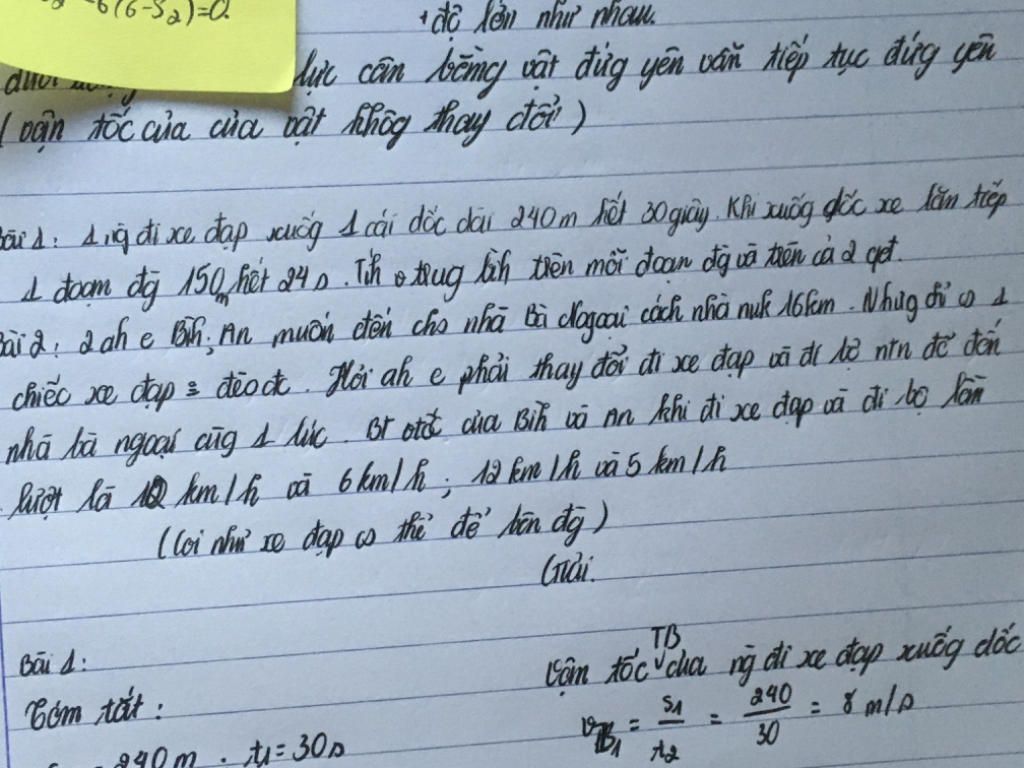 -6(6-S2)=0.
+ độ lớn như nhau.
lực cân bằng vật đứg yên vẫn tiếp tục đứg yên
(vận tốc của của vật khôg thay đổi)
Bài 1: 1 ng đi xe đạp xuốg 1 cái dốc dài 240m hết 30giây. Khi xuốg dốc xe lăn tiếp
1 đoạn đg 150m hết 24s. Tíh v trug bìh trên mỗi đoạn đg và trên cả 2 qđ.
Bài 2: 2 ah e Bìh, An muốn đến chs nhà Bà Ngoại cách nhà mìk 16km. Nhưg chỉ có 1
chiếc xe đạp đèo đc. Hỏi ah e phải thay đổi đi xe đạp và đi bộ ntn để đến
nhà bà ngoại cùg 1 lúc. Bt vtốc của Bìh và An khi đi xe đạp và đi bộ lần
lượt là 10 km/h và 6km/h; 12 km/h và 5 km/h
(Coi như xe đạp có thể để bên đg)
Giải.
Bài 1:
Tóm tắt:
240m. t1=30s
Vận tốc TB của ng đi xe đạp xuốg dốc
vTB1 = S1/t2 = 240/30 = 8 m/s